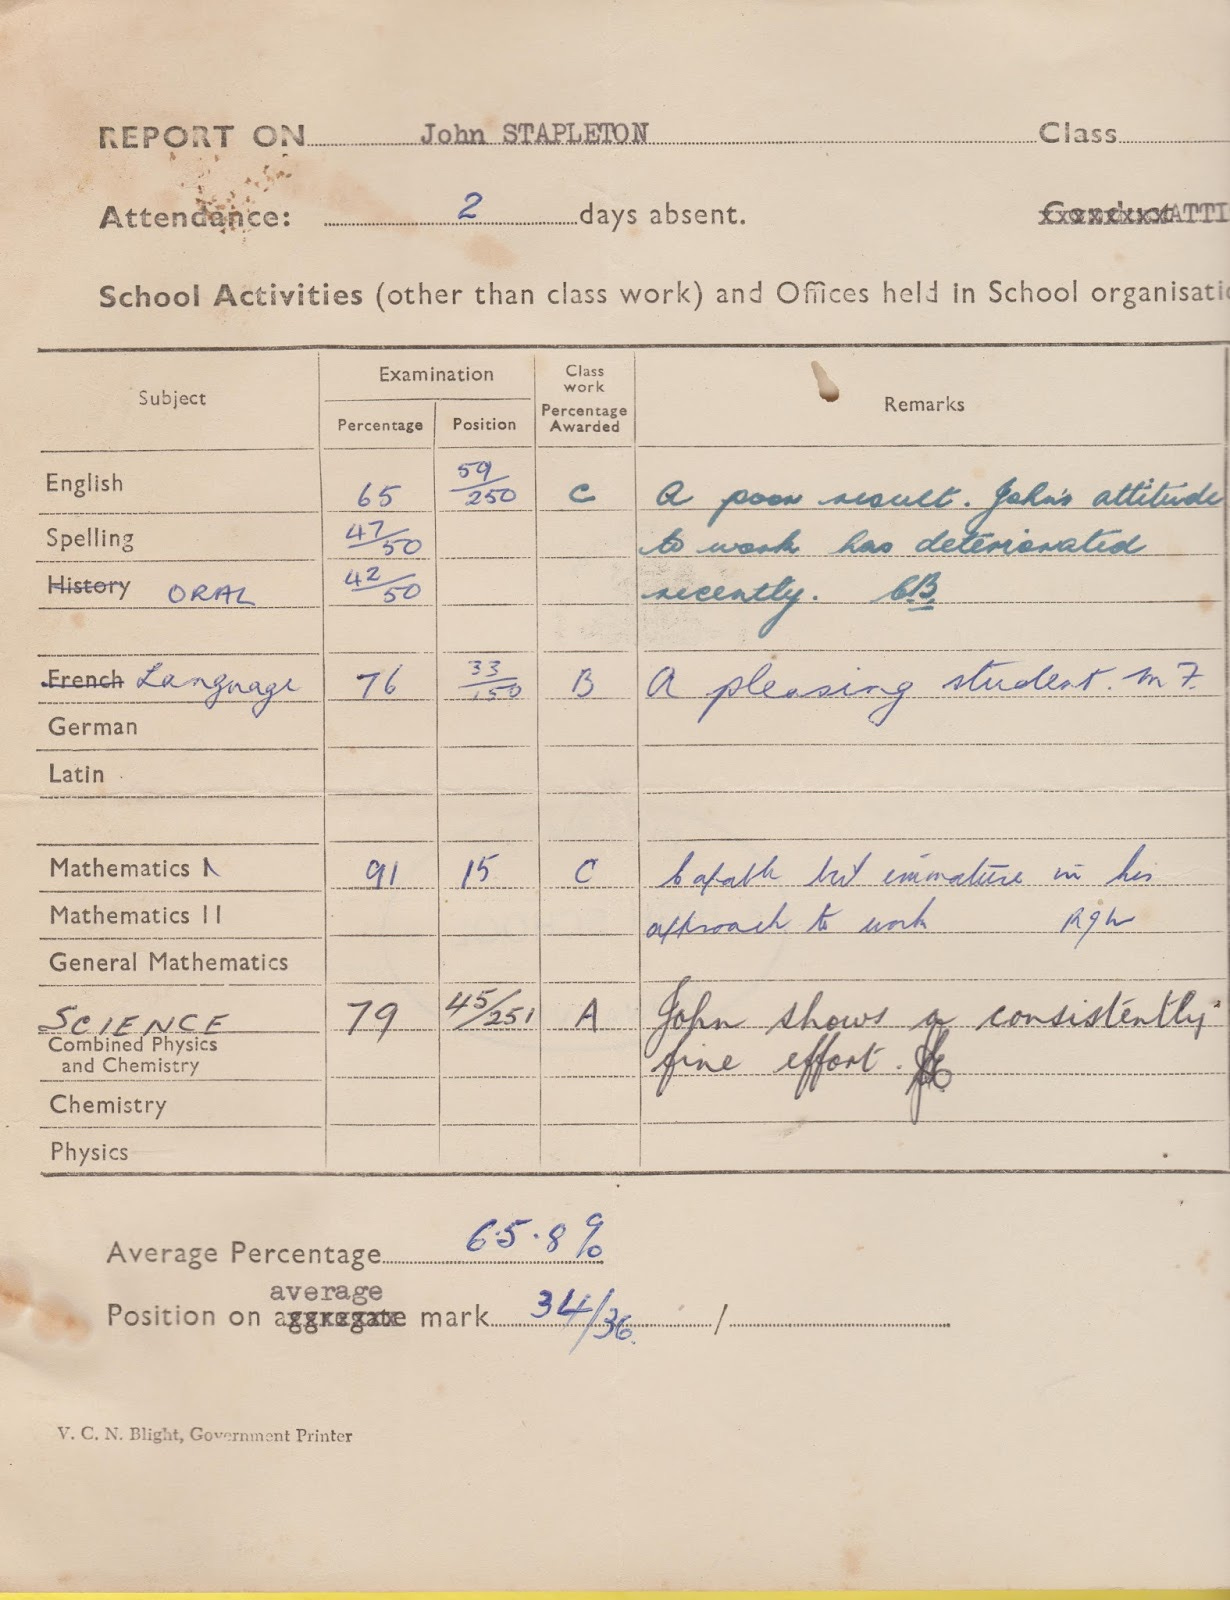 REPORT ON John STAPLETON Class
Attendance: 2 days absent. Conduct ATTI
School Activities (other than class work) and Offices held in School organisati
Subject Examination Class work Percentage Awarded Remarks
Percentage Position
English 65 59/250 C A poor result. John's attitude
Spelling 47/50 to work has deteriorated
History ORAL 42/50 recently. CB
French Language 76 33/150 B A pleasing student. M F.
German
Latin
Mathematics I 91 15 C Capable but immature in his
Mathematics II approach to work RGW
General Mathematics
SCIENCE 79 45/251 A John shows a consistently
Combined Physics fine effort.
and Chemistry
Chemistry
Physics
Average Percentage 65.8%
average
Position on aggregate mark 34/36 /
V. C. N. Blight, Government Printer